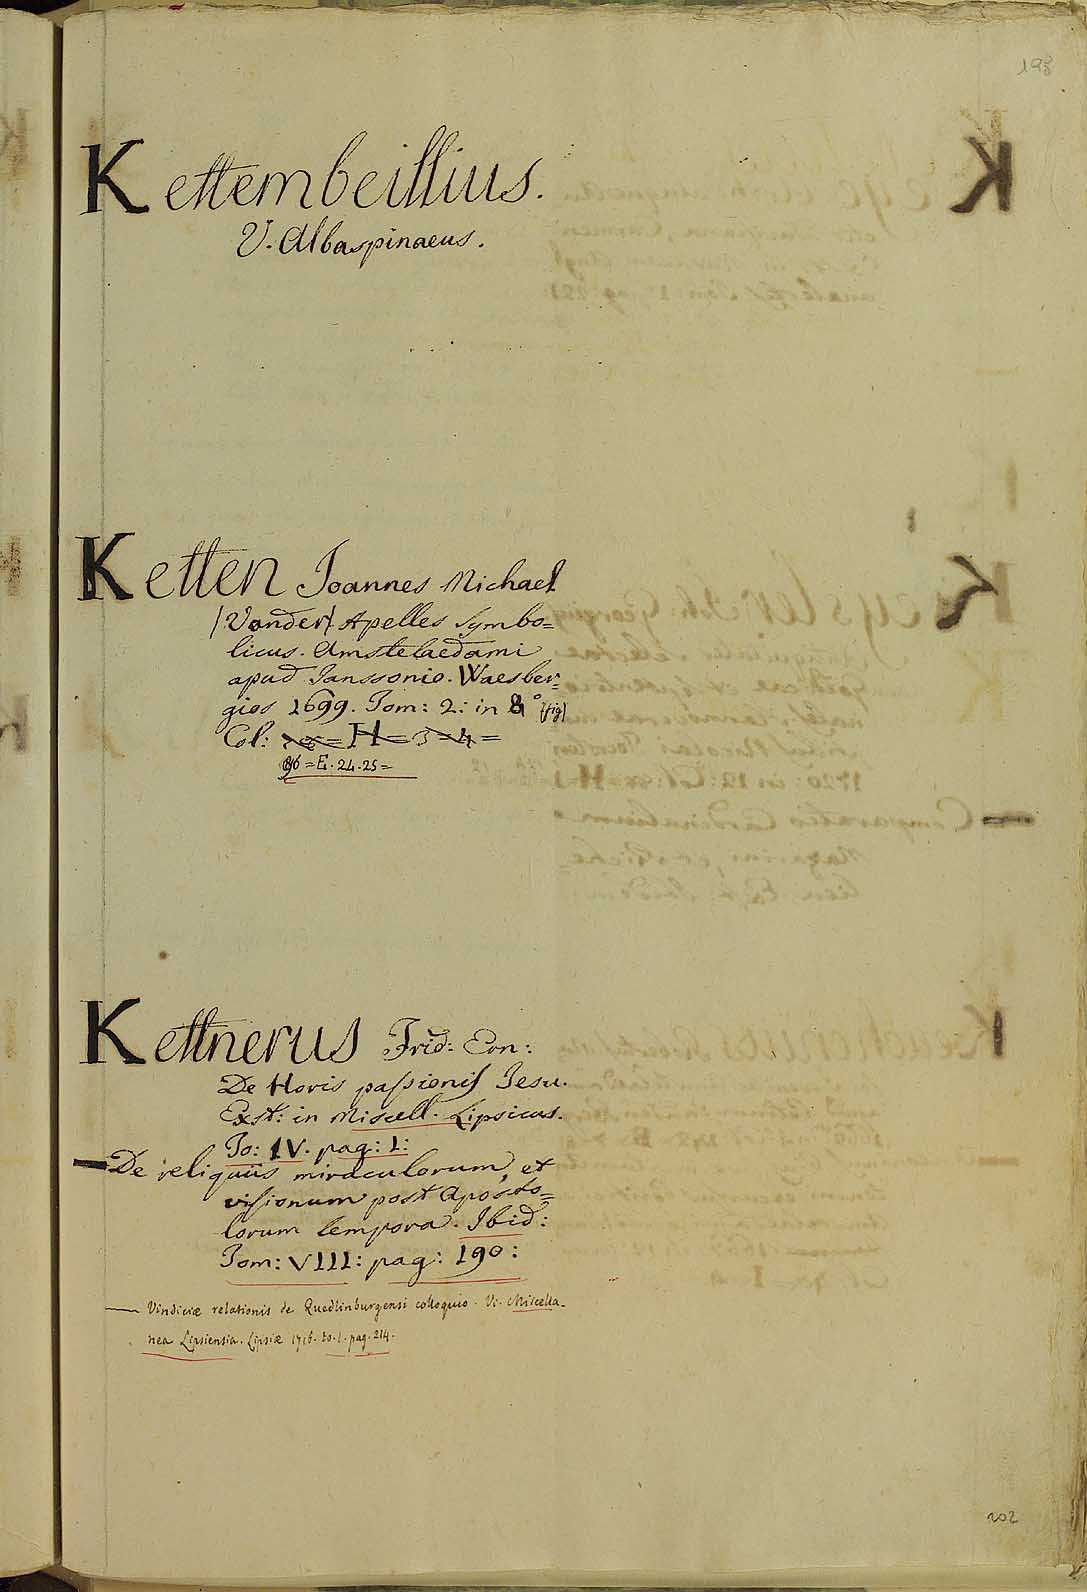 193
Kettembeillius.
V. Albaspinaeus.
Ketten Joannes Michael
(Vander) Apelles Symbo=
licus. Amstelaedami
apud Janssonio. Waesber=
gios 1699. Tom: 2: in 8° (fig)
Col: = H = 3 = 4 =
96 = E. 24. 25 =
Kettnerus Frid: Ern:
De Horis passionis Jesu.
Exst: in Miscell. Lipsicus.
To: IV. pag: 1:
— De reliquiis miraculorum, et
visionum post Aposto=
lorum tempora. Ibid:
Tom: VIII: pag: 190:
— Vindiciæ relationis de Quedlinburgensi colloquio. Vi. Miscella-
nea Lipsiensia. Lipsiæ 1716. to. 1. pag. 214.
202